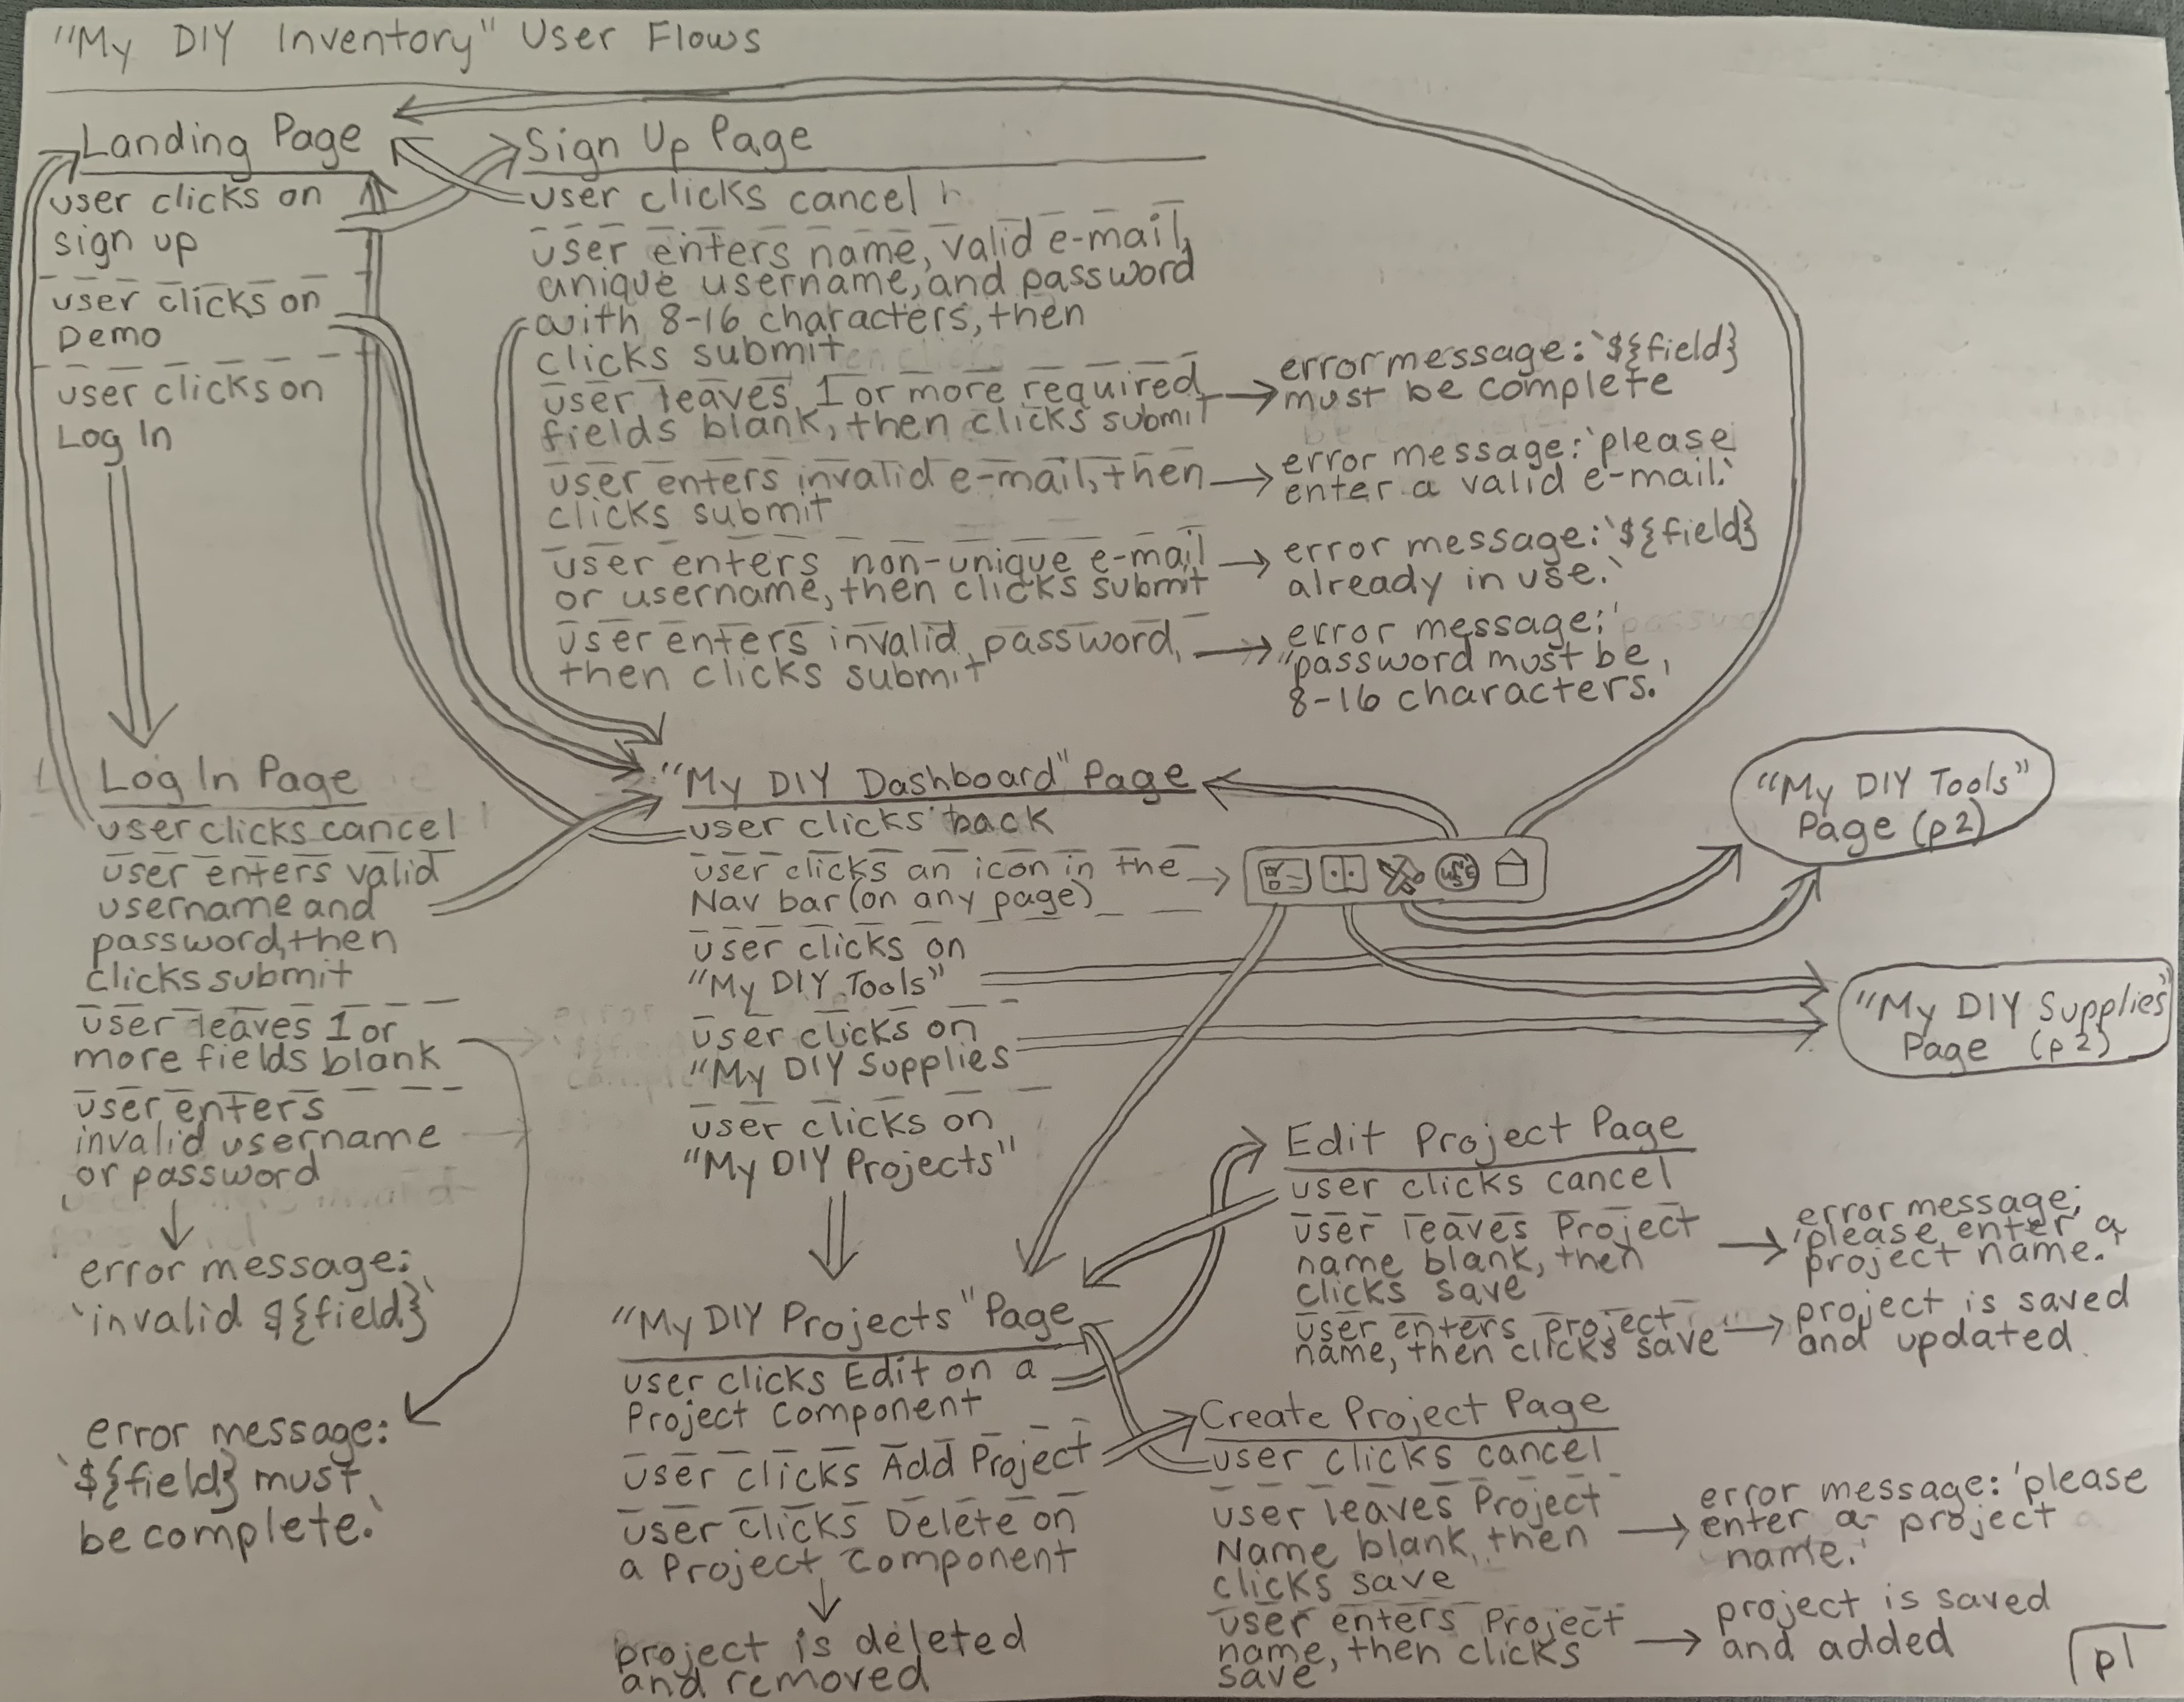 "My DIY Inventory" User Flows
Landing Page
user clicks on
sign up
user clicks on
Demo
user clicks on
Log In
Sign Up Page
user clicks cancel
user enters name, valid e-mail,
unique username, and password
with 8-16 characters, then
clicks submit
user leaves 1 or more required
fields blank, then clicks submit
error message: `${field}
must be complete
user enters invalid e-mail, then
clicks submit
error message: 'please
enter a valid e-mail.'
user enters non-unique e-mail
or username, then clicks submit
error message: `${field}
already in use.`
user enters invalid password,
then clicks submit
error message:
"password must be
8-16 characters.'
Log In Page
user clicks cancel
user enters valid
username and
password, then
clicks submit
user leaves 1 or
more fields blank
user enters
invalid username
or password
error message:
`invalid ${field}`
error message:
`${field} must
be complete.`
"My DIY Dashboard" Page
user clicks back
user clicks an icon in the
Nav bar (on any page)
user clicks on
"My DIY Tools"
user clicks on
"My DIY Supplies
user clicks on
"My DIY Projects"
"My DIY Tools"
Page (p2)
"My DIY Supplies"
Page (p2)
"My DIY Projects" Page
user clicks Edit on a
Project Component
user clicks Add Project
user clicks Delete on
a Project Component
project is deleted
and removed
Edit Project Page
user clicks cancel
user leaves Project
name blank, then
clicks save
error message:
'please enter a
project name.'
user enters project
name, then clicks save
project is saved
and updated.
Create Project Page
user clicks cancel
user leaves Project
Name blank, then
clicks save
error message: 'please
enter a project
name.'
user enters Project
name, then clicks
save
project is saved
and added
p1